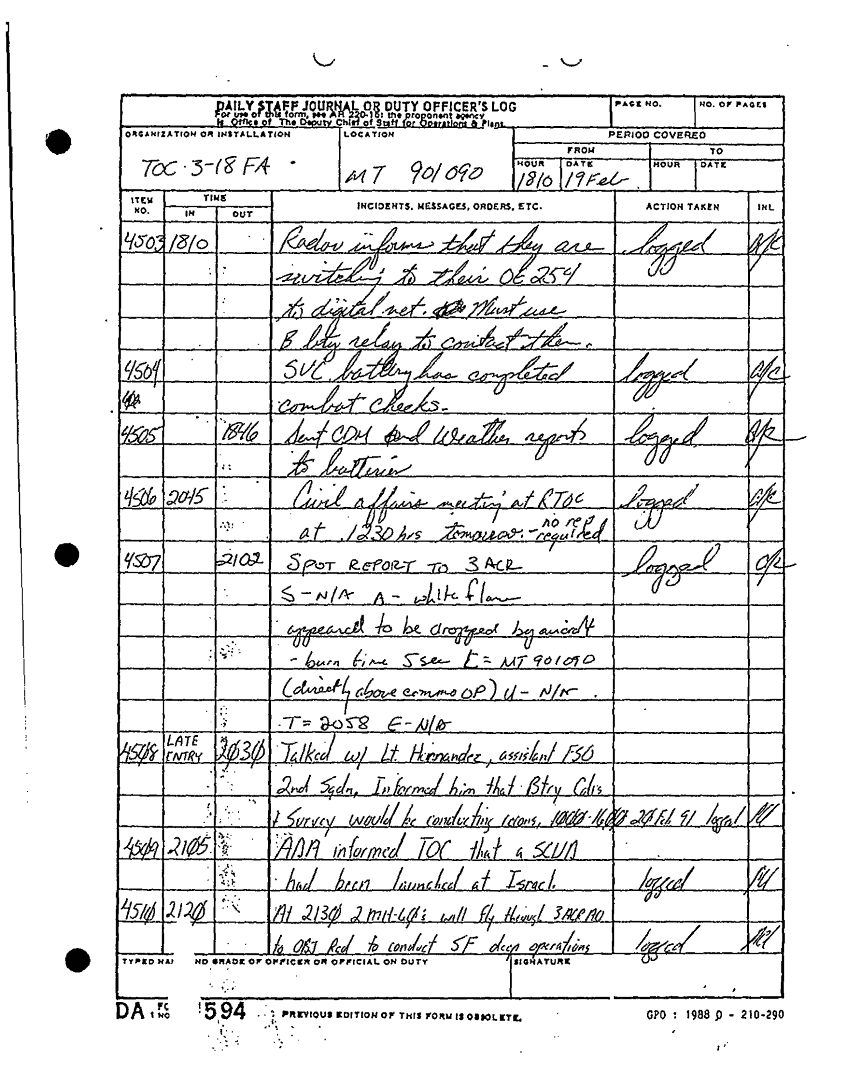 DAILY STAFF JOURNAL OR DUTY OFFICER'S LOG
For use of this form, see AR 220-15; the proponent agency
is Office of The Deputy Chief of Staff for Operations & Plans.
PAGE NO.
NO. OF PAGES
ORGANIZATION OR INSTALLATION
TOC 3-18 FA
LOCATION
MT 901090
PERIOD COVERED
FROM
TO
HOUR
1810
DATE
19 Feb
HOUR
DATE
ITEM NO.
TIME
IN
OUT
INCIDENTS, MESSAGES, ORDERS, ETC.
ACTION TAKEN
INL
4503 1810 Radar informs that they are logged
switching to their OE 254
to digital net. Must use
B bty relay to contact them.
4504 SVC battery has completed logged
combat checks.
4505 1846 Sent CDM and Weather reports logged
to batteries
4506 2045 Civil affairs meeting at RTOC logged
at 1230 hrs tomorrow. - no rep required
4507 2102 SPOT REPORT TO 3 ACR logged
S - N/A A - white flare
appeared to be dropped by aircraft
- burn time 5 sec L = MT 901090
(directly above commo OP) U - N/A.
T = 2058 E - N/A
4508 LATE ENTRY 2030 Talked w/ Lt. Hernandez, assistant FSO
2nd Sqdn, Informed him that Btry Cdrs
+ Survey would be conducting recons, 1000-1600 20 Feb 91 logged
4509 2105 ADA informed TOC that a SCUD
had been launched at Israel. logged
4510 2120 At 2130 2 MH-60's will fly through 3 ACR AO
to OBJ Red to conduct SF deep operations logged
TYPED NA ND GRADE OF OFFICER OR OFFICIAL ON DUTY
SIGNATURE
DA 594
PREVIOUS EDITION OF THIS FORM IS OBSOLETE.
GPO : 1988 0 - 210-290